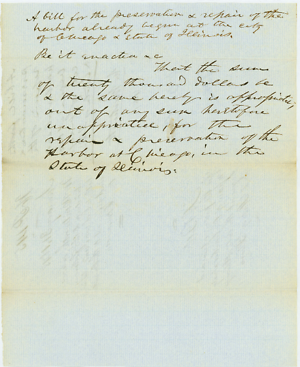 A bill for the preservation & repair of the
harbor already begun at the city
of Chicago & State of Illinois.
Be it enacted &c
That the sum
of twenty thousand dollars be
& the same hereby is appropriated,
out of any sum heretofore
unappropriated, for the
repair & preservation of the
Harbor at Chicago, in the
State of Illinois.